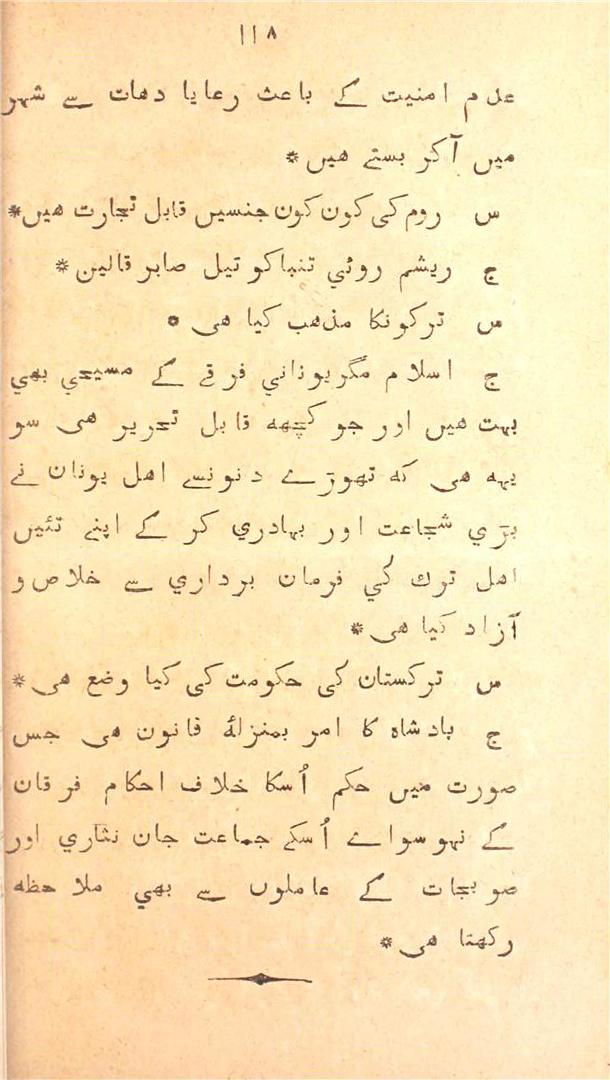 ۱۱۸
عدم امنیت کے باعث رعایا دهات سے شہر
میں آکر بستے هیں *
س روم کی کون کون جنسیں قابل تجارت هیں *
ج ریشم روئي تنباکو تیل صابر قالین *
س ترکونکا مذهب کیا هی *
ج اسلام مگر یوناني فرقے کے مسیحي بهي
بہت هیں اور جو کچهہ قابل تحریر هی سو
یہہ هی کہ تهوڑے دنونسے اهل یونان نے
بڑي شجاعت اور بہادري کر کے اپنے تئیں
اهل ترک کي فرمان برداري سے خلاص و
آزاد کیا هی *
س ترکستان کی حکومت کی کیا وضع هی *
ج بادشاہ کا امر بمنزلۂ قانون هی جس
صورت میں حکم اُسکا خلاف احکام فرقان
کے نہو سواے اُسکے جماعت جان نثاري اور
صوبجات کے عاملوں سے بهي ملاحظہ
رکهتا هی *